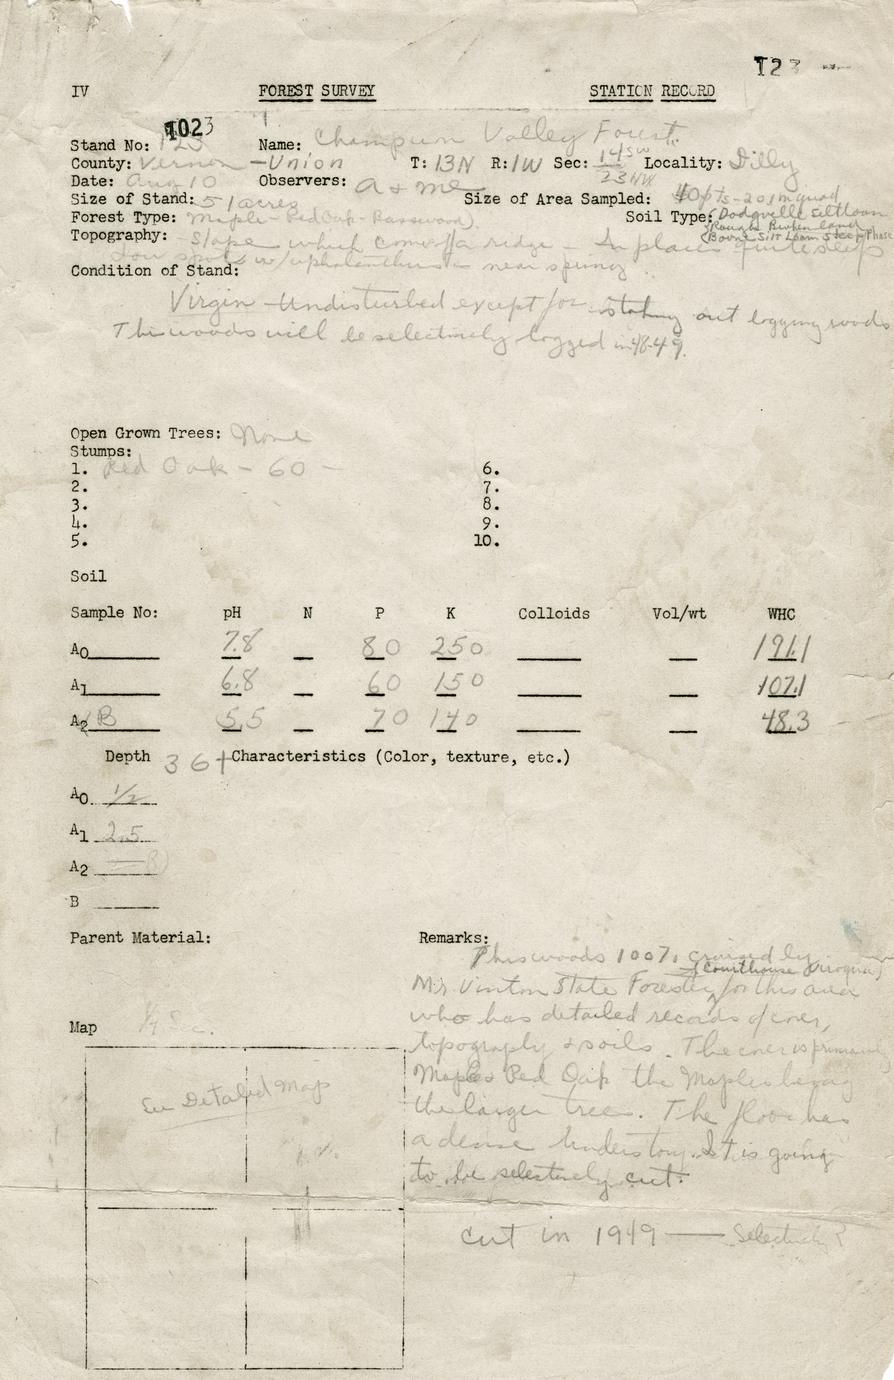 123
IV FOREST SURVEY STATION RECORD
1023
Stand No: 123 Name: Champion Valley Forest
County: Vernon - Union T: 13N R: 1W Sec: 14 SW 23 NW Locality: Dilly
Date: Aug 10 Observers: A & ME
Size of Stand: 51 acres Size of Area Sampled: 40 pts - 20 1m quad
Forest Type: Maple - Red Oak - Basswood Soil Type: Dodgeville Silt Loam
Rough Broken land
Topography: Slope which comes off a ridge. In places quite steep
Boone Silt Loam Steep Phase
Low spots w/ cephalanthus near spring.
Condition of Stand:
Virgin - Undisturbed except for staking out logging roads
This woods will be selectively logged in 48-49.
Open Grown Trees: None
Stumps:
1. Red Oak - 60 - 6.
2. 7.
3. 8.
4. 9.
5. 10.
Soil
Sample No: pH N P K Colloids Vol/wt WHC
A0 7.8 80 250 191.1
A1 6.8 60 150 107.1
A2 (B 5.5 70 140 48.3
Depth 36+ Characteristics (Color, texture, etc.)
A0 1/2
A1 2.5
A2 B)
B
Parent Material: Remarks:
This woods 100% cruised by
(Courthouse Viroqua)
Mr. Vinton State Forester for this area
who has detailed records of cover,
topography & soils. The cover is primarily
Maple & Red Oak the Maples being
the larger trees. The floor has
a dense understory. It is going
to be selectively cut.
cut in 1949 — Selectively?
Map 1/4 Sec.
See Detailed Map